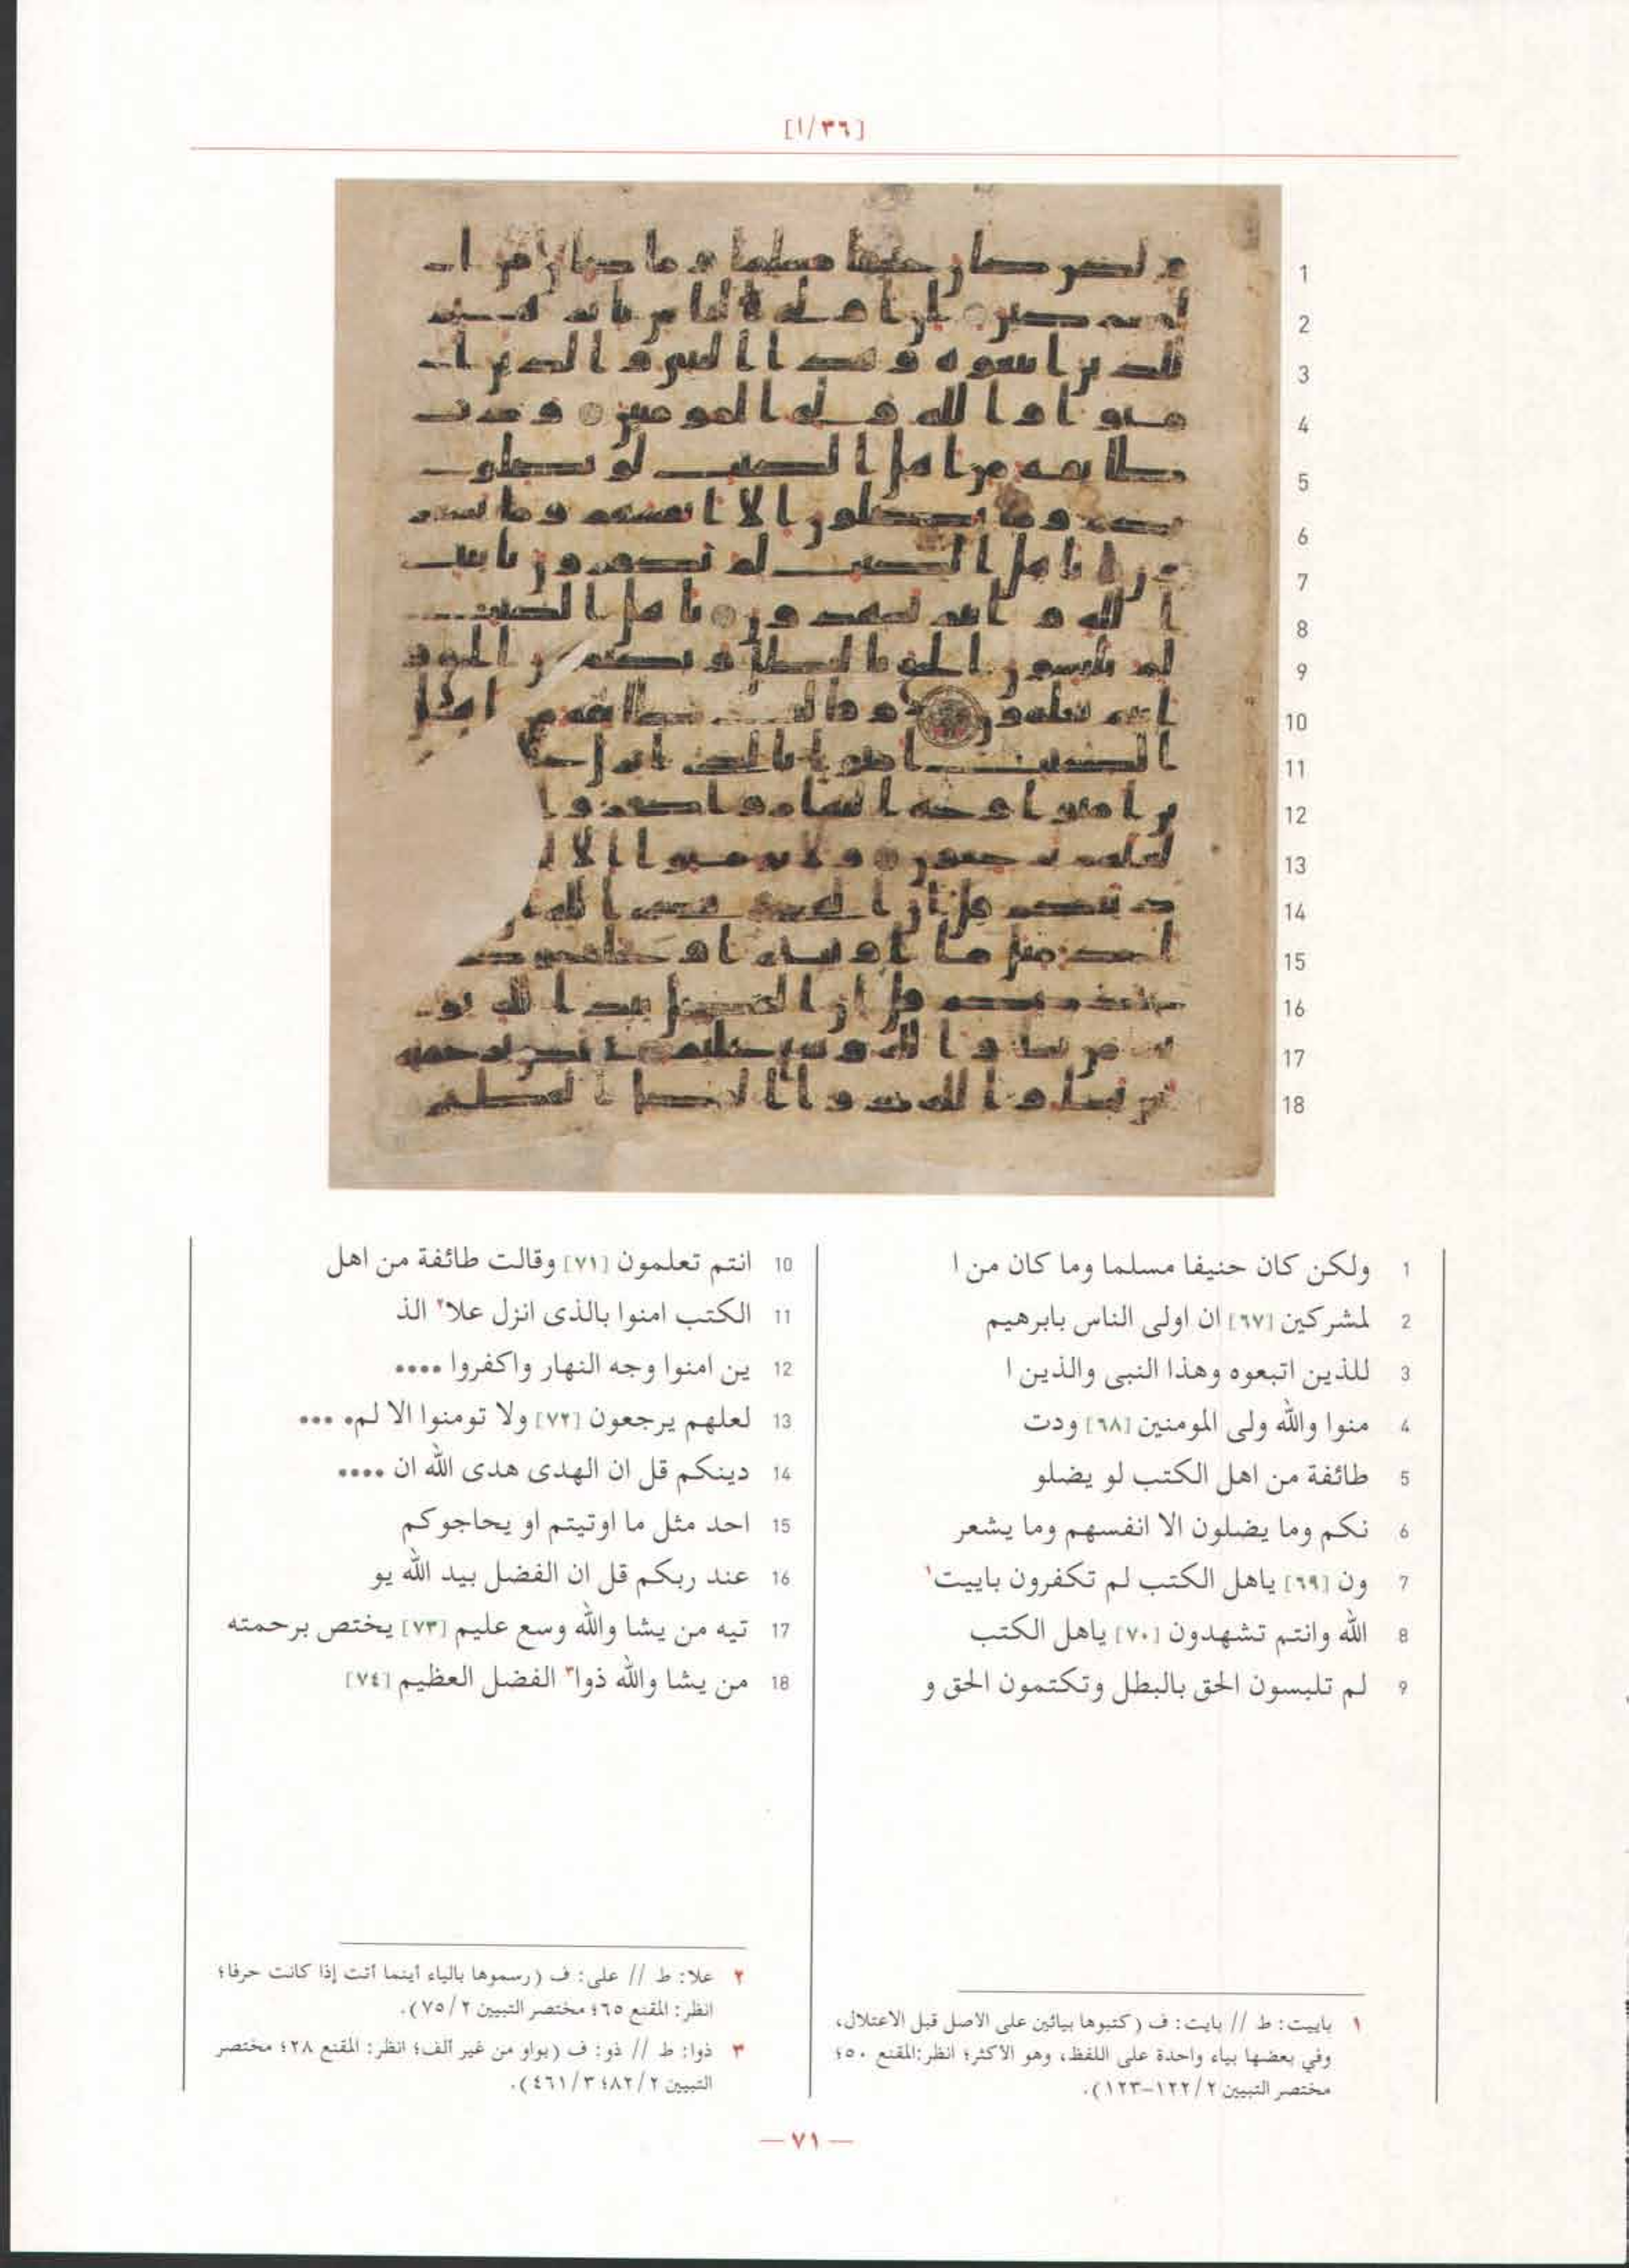 [١/٣٦]
1 ولكن كان حنيفا مسلما وما كان من ا
2 لمشركين [٦٧] ان اولى الناس بابرهيم
3 للذين اتبعوه وهذا النبى والذين ا
4 منوا والله ولى المومنين [٦٨] ودت
5 طائفة من اهل الكتب لو يضلو
6 نكم وما يضلون الا انفسهم وما يشعر
7 ون [٦٩] ياهل الكتب لم تكفرون باييت١
8 الله وانتم تشهدون [٧٠] ياهل الكتب
9 لم تلبسون الحق بالبطل وتكتمون الحق و
10 انتم تعلمون [٧١] وقالت طائفة من اهل
11 الكتب امنوا بالذى انزل علا٢ الذ
12 ين امنوا وجه النهار واكفروا ••••
13 لعلهم يرجعون [٧٢] ولا تومنوا الا لم• •••
14 دينكم قل ان الهدى هدى الله ان ••••
15 احد مثل ما اوتيتم او يحاجوكم
16 عند ربكم قل ان الفضل بيد الله يو
17 تيه من يشا والله وسع عليم [٧٣] يختص برحمته
18 من يشا والله ذوا٣ الفضل العظيم [٧٤]
١ باييت: ط // بايت: ف (كتبوها بيائين على الاصل قبل الاعتلال،
وفي بعضها بياء واحدة على اللفظ، وهو الاكثر؛ انظر:المقنع ٥٠؛
مختصر التبيين ٢/ ١٢٢–١٢٣).
٢ علا: ط // على: ف (رسموها بالياء أينما أتت إذا كانت حرفا؛
انظر: المقنع ٦٥؛ مختصر التبيين ٢/ ٧٥).
٣ ذوا: ط // ذو: ف (بواو من غير ألف؛ انظر: المقنع ٢٨؛ مختصر
التبيين ٢/ ٨٢؛ ٣/ ٤٦١).
— ٧١ —